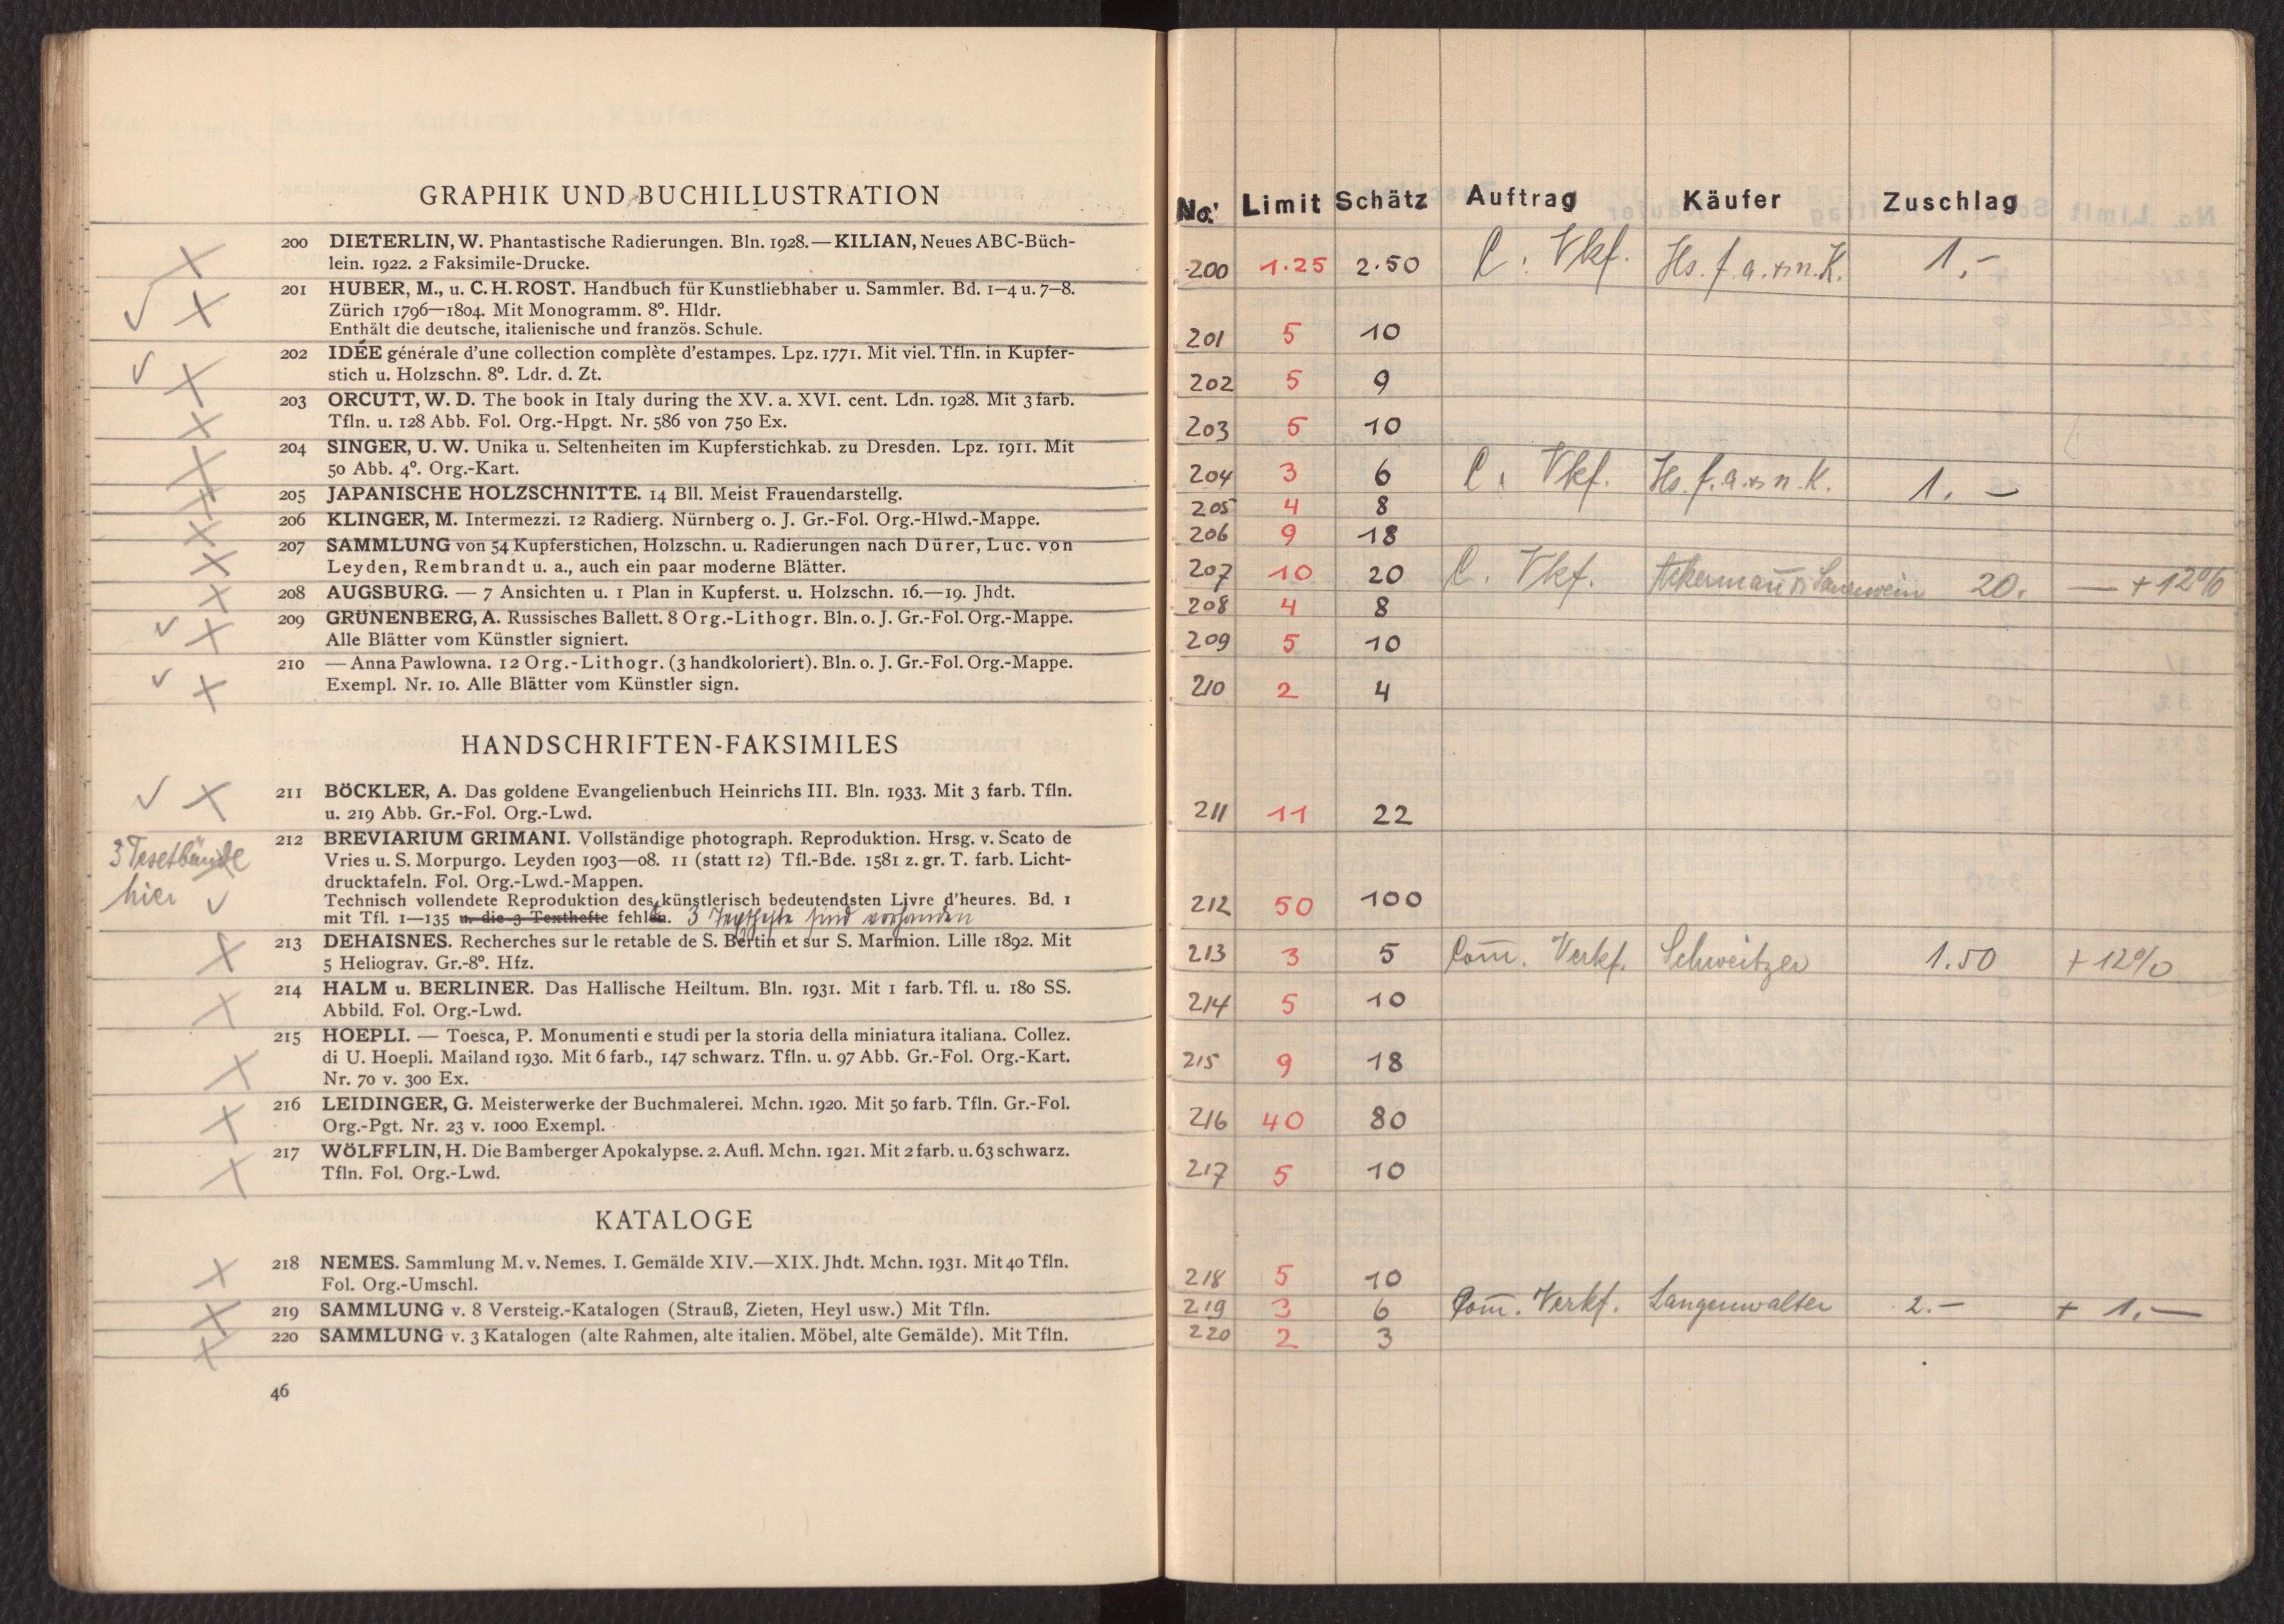 GRAPHIK UND BUCHILLUSTRATION
200 DIETERLIN, W. Phantastische Radierungen. Bln. 1928. — KILIAN, Neues ABC-Büch-
lein. 1922. 2 Faksimile-Drucke.
201 HUBER, M., u. C. H. ROST. Handbuch für Kunstliebhaber u. Sammler. Bd. 1—4 u. 7—8.
Zürich 1796—1804. Mit Monogramm. 8°. Hldr.
Enthält die deutsche, italienische und französ. Schule.
202 IDÉE générale d'une collection complète d'estampes. Lpz. 1771. Mit viel. Tfln. in Kupfer-
stich u. Holzschn. 8°. Ldr. d. Zt.
203 ORCUTT, W. D. The book in Italy during the XV. a. XVI. cent. Ldn. 1928. Mit 3 farb.
Tfln. u. 128 Abb. Fol. Org.-Hpgt. Nr. 586 von 750 Ex.
204 SINGER, U. W. Unika u. Seltenheiten im Kupferstichkab. zu Dresden. Lpz. 1911. Mit
50 Abb. 4°. Org.-Kart.
205 JAPANISCHE HOLZSCHNITTE. 14 Bll. Meist Frauendarstellg.
206 KLINGER, M. Intermezzi. 12 Radierg. Nürnberg o. J. Gr.-Fol. Org.-Hlwd.-Mappe.
207 SAMMLUNG von 54 Kupferstichen, Holzschn. u. Radierungen nach Dürer, Luc. von
Leyden, Rembrandt u. a., auch ein paar moderne Blätter.
208 AUGSBURG. — 7 Ansichten u. 1 Plan in Kupferst. u. Holzschn. 16.—19. Jhdt.
209 GRÜNENBERG, A. Russisches Ballett. 8 Org.-Lithogr. Bln. o. J. Gr.-Fol. Org.-Mappe.
Alle Blätter vom Künstler signiert.
210 — Anna Pawlowna. 12 Org.-Lithogr. (3 handkoloriert). Bln. o. J. Gr.-Fol. Org.-Mappe.
Exempl. Nr. 10. Alle Blätter vom Künstler sign.
HANDSCHRIFTEN-FAKSIMILES
211 BÖCKLER, A. Das goldene Evangelienbuch Heinrichs III. Bln. 1933. Mit 3 farb. Tfln.
u. 219 Abb. Gr.-Fol. Org.-Lwd.
212 BREVIARIUM GRIMANI. Vollständige photograph. Reproduktion. Hrsg. v. Scato de
Vries u. S. Morpurgo. Leyden 1903—08. 11 (statt 12) Tfl.-Bde. 1581 z. gr. T. farb. Licht-
drucktafeln. Fol. Org.-Lwd.-Mappen.
Technisch vollendete Reproduktion des künstlerisch bedeutendsten Livre d'heures. Bd. 1
mit Tfl. 1—135 u. die 3 Texthefte fehlen. 3 Texthefte sind vorhanden
3 Textbände
hier
213 DEHAISNES. Recherches sur le retable de S. Bertin et sur S. Marmion. Lille 1892. Mit
5 Heliograv. Gr.-8°. Hfz.
214 HALM u. BERLINER. Das Hallische Heiltum. Bln. 1931. Mit 1 farb. Tfl. u. 180 SS.
Abbild. Fol. Org.-Lwd.
215 HOEPLI. — Toesca, P. Monumenti e studi per la storia della miniatura italiana. Collez.
di U. Hoepli. Mailand 1930. Mit 6 farb., 147 schwarz. Tfln. u. 97 Abb. Gr.-Fol. Org.-Kart.
Nr. 70 v. 300 Ex.
216 LEIDINGER, G. Meisterwerke der Buchmalerei. Mchn. 1920. Mit 50 farb. Tfln. Gr.-Fol.
Org.-Pgt. Nr. 23 v. 1000 Exempl.
217 WÖLFFLIN, H. Die Bamberger Apokalypse. 2. Aufl. Mchn. 1921. Mit 2 farb. u. 63 schwarz.
Tfln. Fol. Org.-Lwd.
KATALOGE
218 NEMES. Sammlung M. v. Nemes. I. Gemälde XIV.—XIX. Jhdt. Mchn. 1931. Mit 40 Tfln.
Fol. Org.-Umschl.
219 SAMMLUNG v. 8 Versteig.-Katalogen (Strauß, Zieten, Heyl usw.) Mit Tfln.
220 SAMMLUNG v. 3 Katalogen (alte Rahmen, alte italien. Möbel, alte Gemälde). Mit Tfln.
46
No. Limit Schätz Auftrag Käufer Zuschlag
200 1.25 2.50 C. Vkf. Hs. f. a. u. n. K. 1.—
201 5 10
202 5 9
203 5 10
204 3 6 C. Vkf. Hs. f. a. u. n. K. 1.—
205 4 8
206 9 18
207 10 20 C. Vkf. Ackermann & Sauerwein 20.— + 12%
208 4 8
209 5 10
210 2 4
211 11 22
212 50 100
213 3 5 Com̄. Verkf. Schweitzer 1.50 + 12%
214 5 10
215 9 18
216 40 80
217 5 10
218 5 10
219 3 6 Com̄. Verkf. Langenwalter 2.— + 1.—
220 2 3